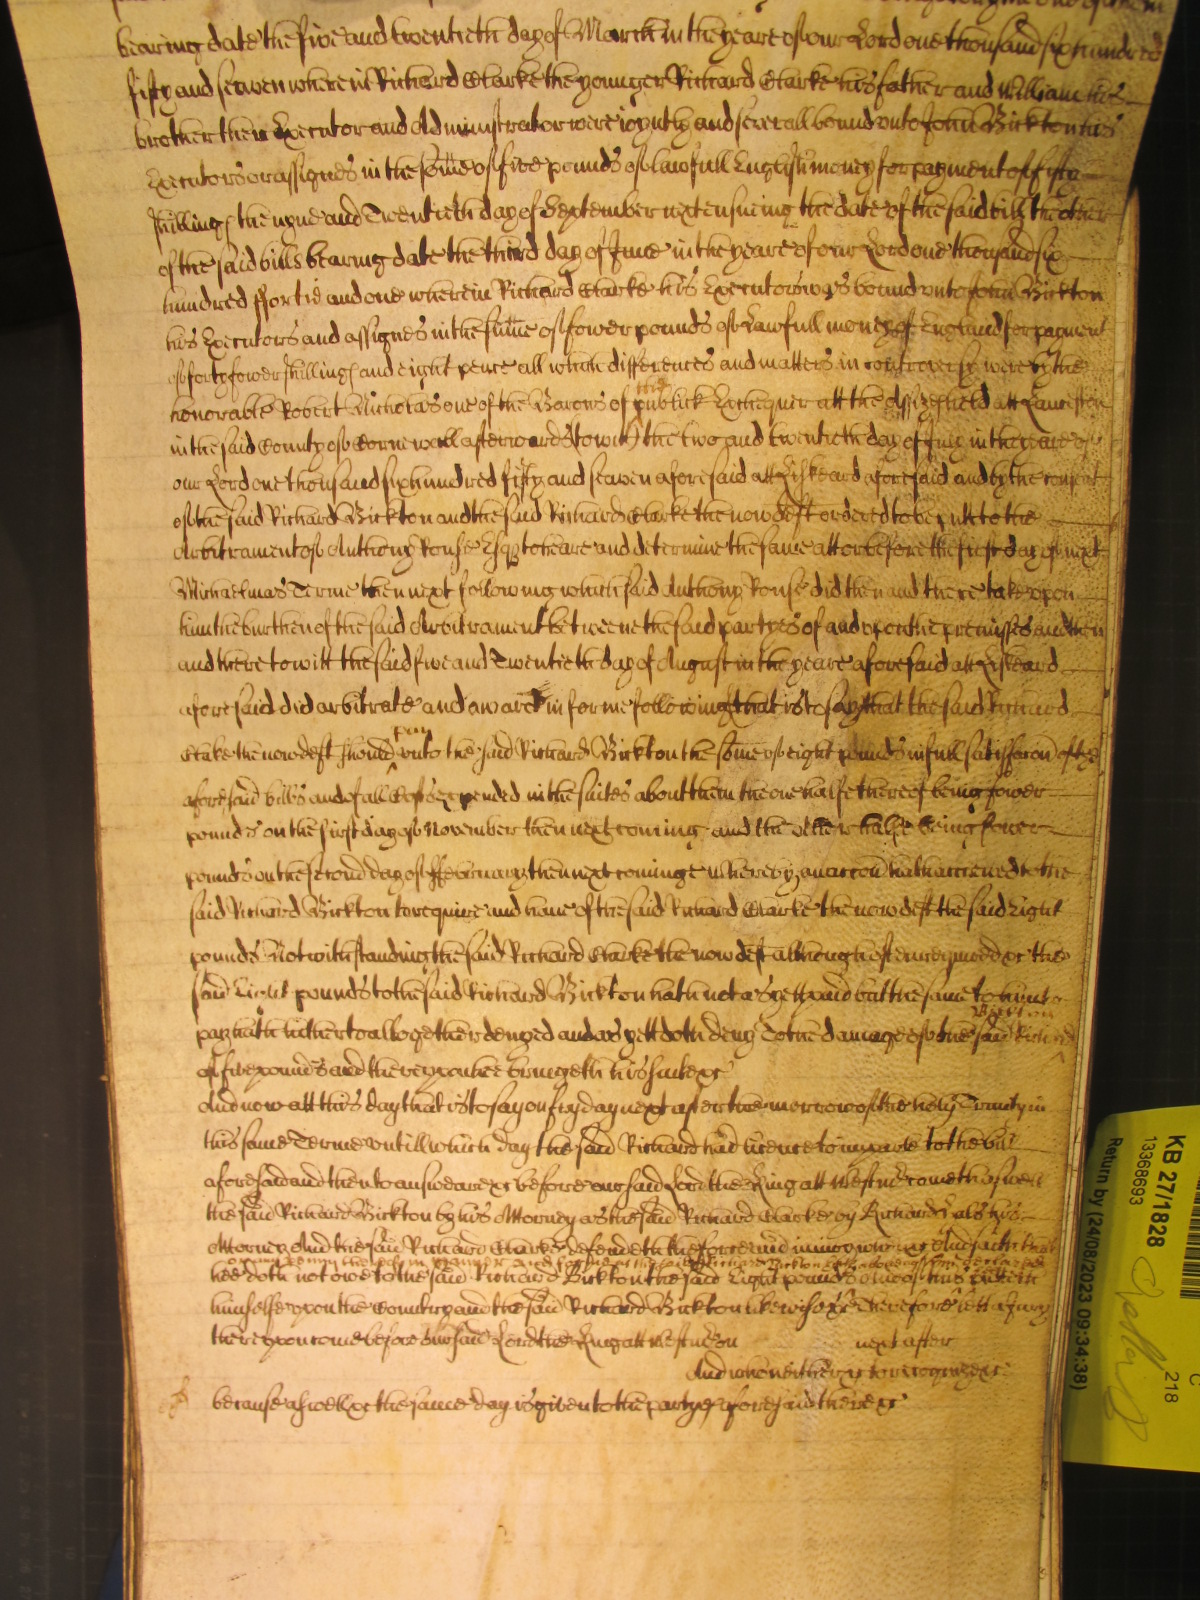 bearing date the five and twentieth day of March in the yeare of our Lord one thousand six hundred
fifty and seaven wherein Richard Clarke the younger Richard Clarke his father and William his
brother their Executor and Administrator were ioyntly and severall bound unto John Bickton his
Executors or assignes in the some of five pounds of lawfull English money for payment of fifty
shillings the nyne and Twentieth day of September next ensueing the date of the said bill the other
of the said bills bearing date the third day of June in the yeare of our Lord one thousand six
hundred ffortie and one wherein Richard Clarke his Executors was bound unto John Bickton
his Executors and assignes in the summe of fower pounds of Lawfull money of England for payment
of forty fower shillings and eight pence all which differences and matters in controversy were by the
honorable Robert Nicholas one of the Barons of the publick Exchequer att the Assizes held att Lanceston
in the said County of Cornewall afterwards to witt the two and twentieth day of July in the yeare of
our Lord one thousand six hundred fifty and seaven aforesaid att Liskeard aforesaid and by the consent
of the said Richard Bickton and the said Richard Clarke the now deft ordered to be putt to the
Arbitrament of Anthony Rouse Esqr to heare and determine the same att or before the first day of next
Michaelmas Terme then next following which said Anthony Rouse did then and there take upon
him the burthen of the said Arbitrament betweene the said partyes of and upon the premisses and then
and there to witt the said five and Twentieth day of August in the yeare aforesaid att Liskeard
aforesaid did arbitrate and award in forme following that is to say that the said Richard
Clarke the now deft should pay unto the said Richard Bickton the some of eight pounds in full satisfaccon of the
aforesaid bills and of all Costs expended in the suites about them the one halfe thereof being fower
pounds on the first day of November then next coming and the other halfe being fower
pounds on the second day of ffebruary then next cominge whereby an accon hath accrewed to the
said Richard Bickton to require and have of the said Richard Clarke the now deft the said Eight
pounds Notwithstanding the said Richard Clarke the now deft although often required &c the
said Eight pounds to the said Richard Bickton hath not as yett paid but the same to him to
pay hath hitherto alltogether denyed and as yett doth deny To the damage of the said Richard Bickton
of five pounds and thereupon hee bringeth his suite &c
And now att this day that is to say on fryday next after the morrow of the holy Trinity in
this same Terme untill which day the said Richard had licence to imparle to the bill
aforesaid and then to answeare &c before our said Lord the King att Westmr come th aswell
the said Richard Bickton by his Attorney as the said Richard Clarke by Richard his
Attorney And the said Richard Clarke defendeth the force and iniury when &c And saith that
hee doth not owe to the said Richard Bickton the said Eight pounds in manner and forme as the said Richard Bickton And of this putteth
himselfe upon the Countrey and the said Richard Bickton likewise &c Therefore lett a Jury
thereupon come before our said Lord the King att Westmr on next after
And who neither &c to recognize &c
because aswell &c the same day is given to the partyes aforesaid there &c
KB 27/1828
13368693
Return by (24/08/2023 09:34:38)
C
218